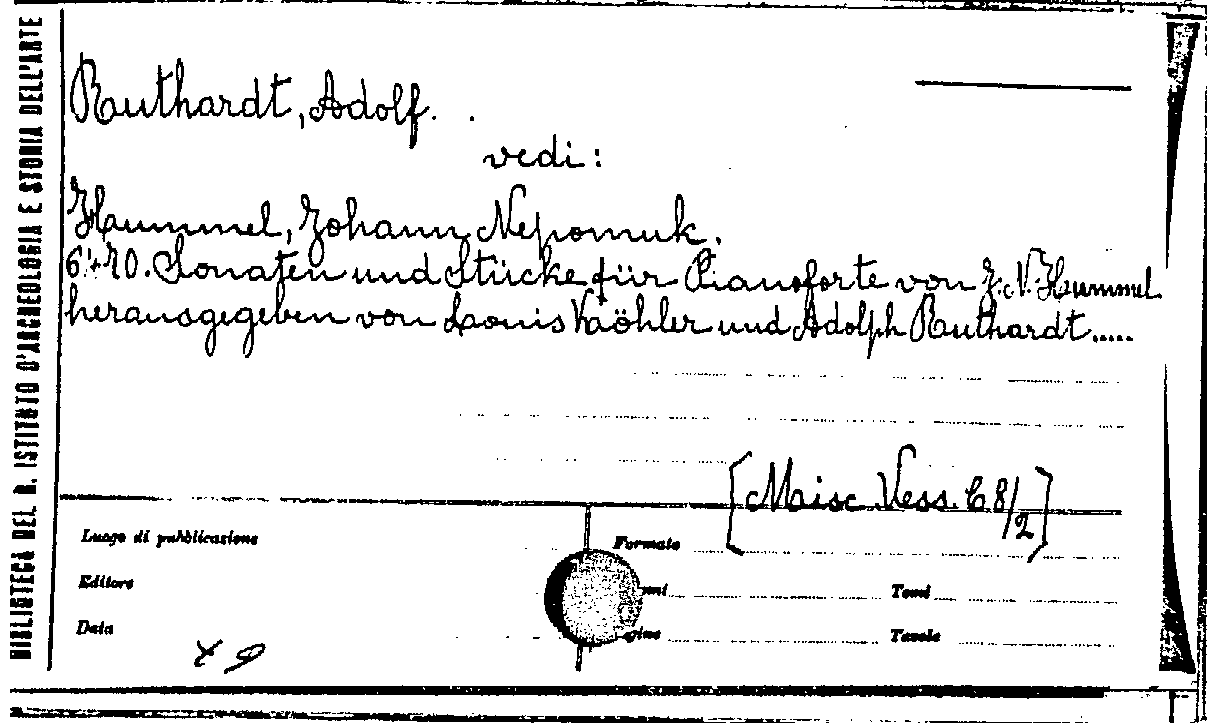 BIBLIOTECA DEL R. ISTITUTO D'ARCHEOLOGIA E STORIA DELL'ARTE
Ruthardt, Adolf.
vedi:
Hummel, Johann Nepomuk.
Sonaten und Stücke für Pianoforte von J. N. Hummel
herausgegeben von Louis Köhler und Adolph Ruthardt.....
[Misc. Vess. C 8/2]
Luogo di pubblicazione
Formato
Editore
Tomi
Data
Tavole